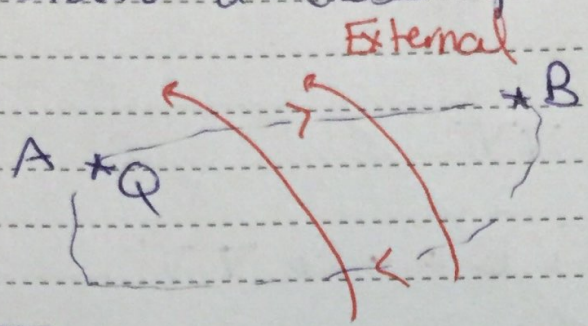 External
B
A
Q